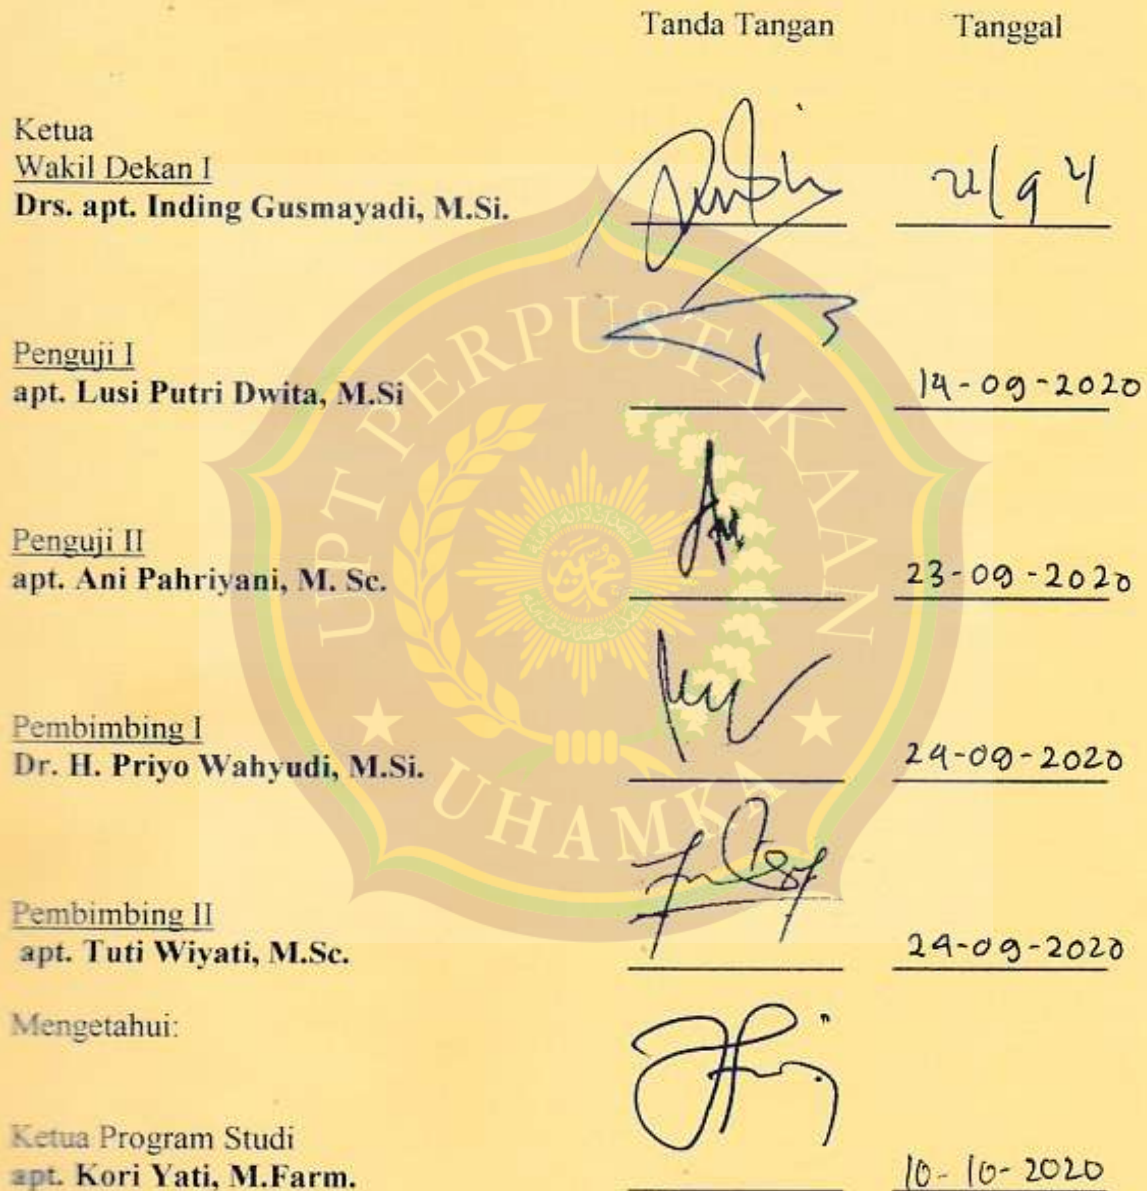 Tanda Tangan Tanggal
Ketua
Wakil Dekan I
Drs. apt. Inding Gusmayadi, M.Si.
Penguji I
apt. Lusi Putri Dwita, M.Si
14-09-2020
Penguji II
apt. Ani Pahriyani, M. Sc.
23-09-2020
Pembimbing I
Dr. H. Priyo Wahyudi, M.Si.
24-09-2020
Pembimbing II
apt. Tuti Wiyati, M.Sc.
24-09-2020
Mengetahui:
Ketua Program Studi
apt. Kori Yati, M.Farm.
10-10-2020
UPT PERPUSTAKAAN
UHAMKA